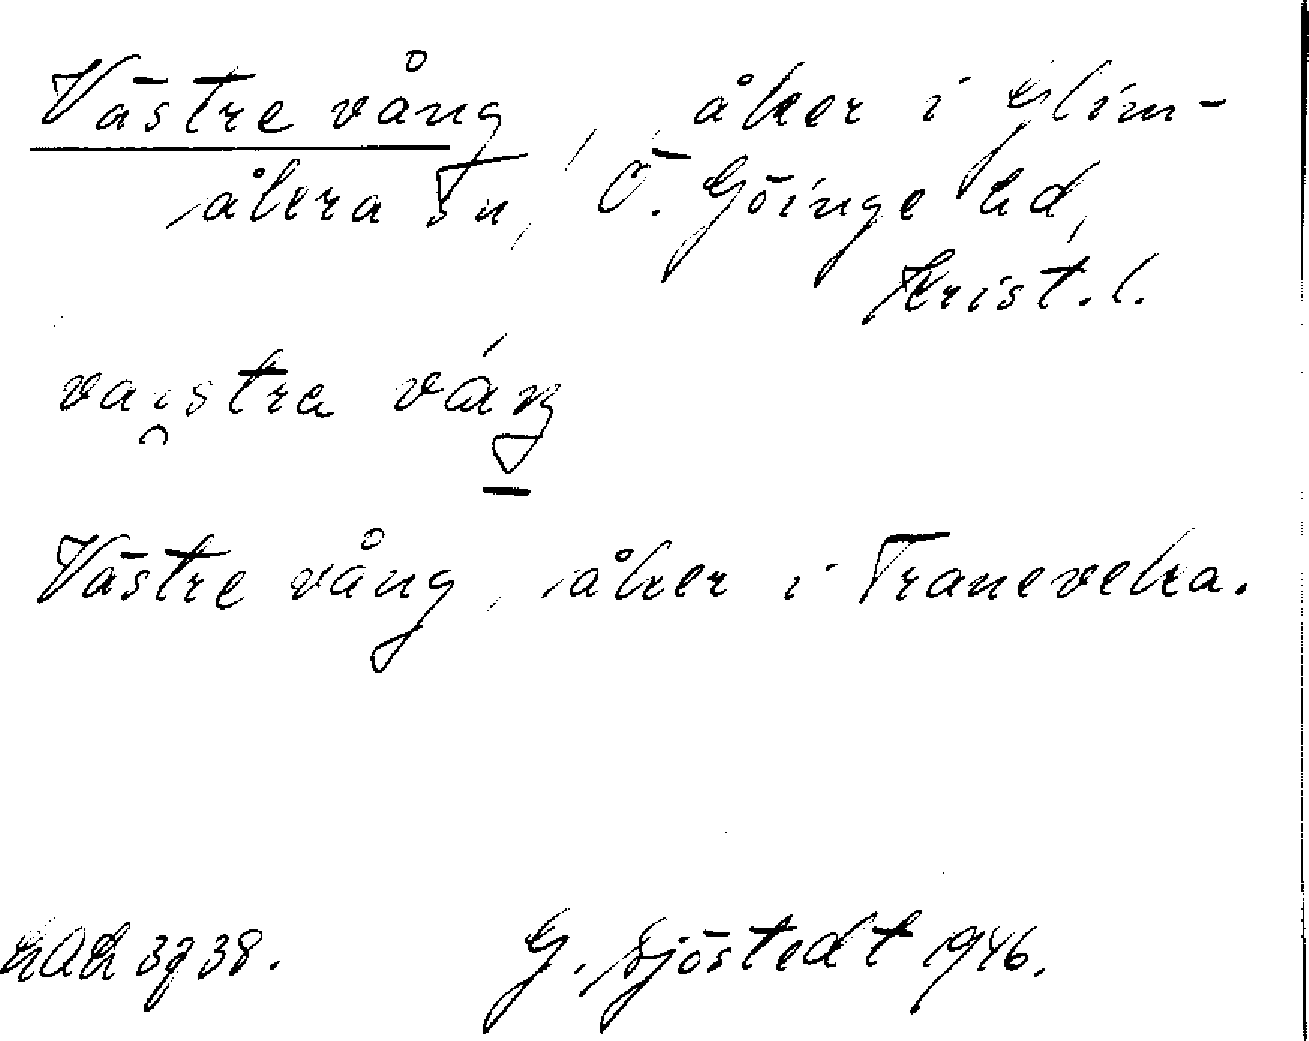 Västre vång, åker i Glim-
åkra sn, Ö. Göinge hd,
Krist. l.
vai̯stra váŋ
Västre vång, åker i Traneveka.
3938. G. Sjöstedt 1946.